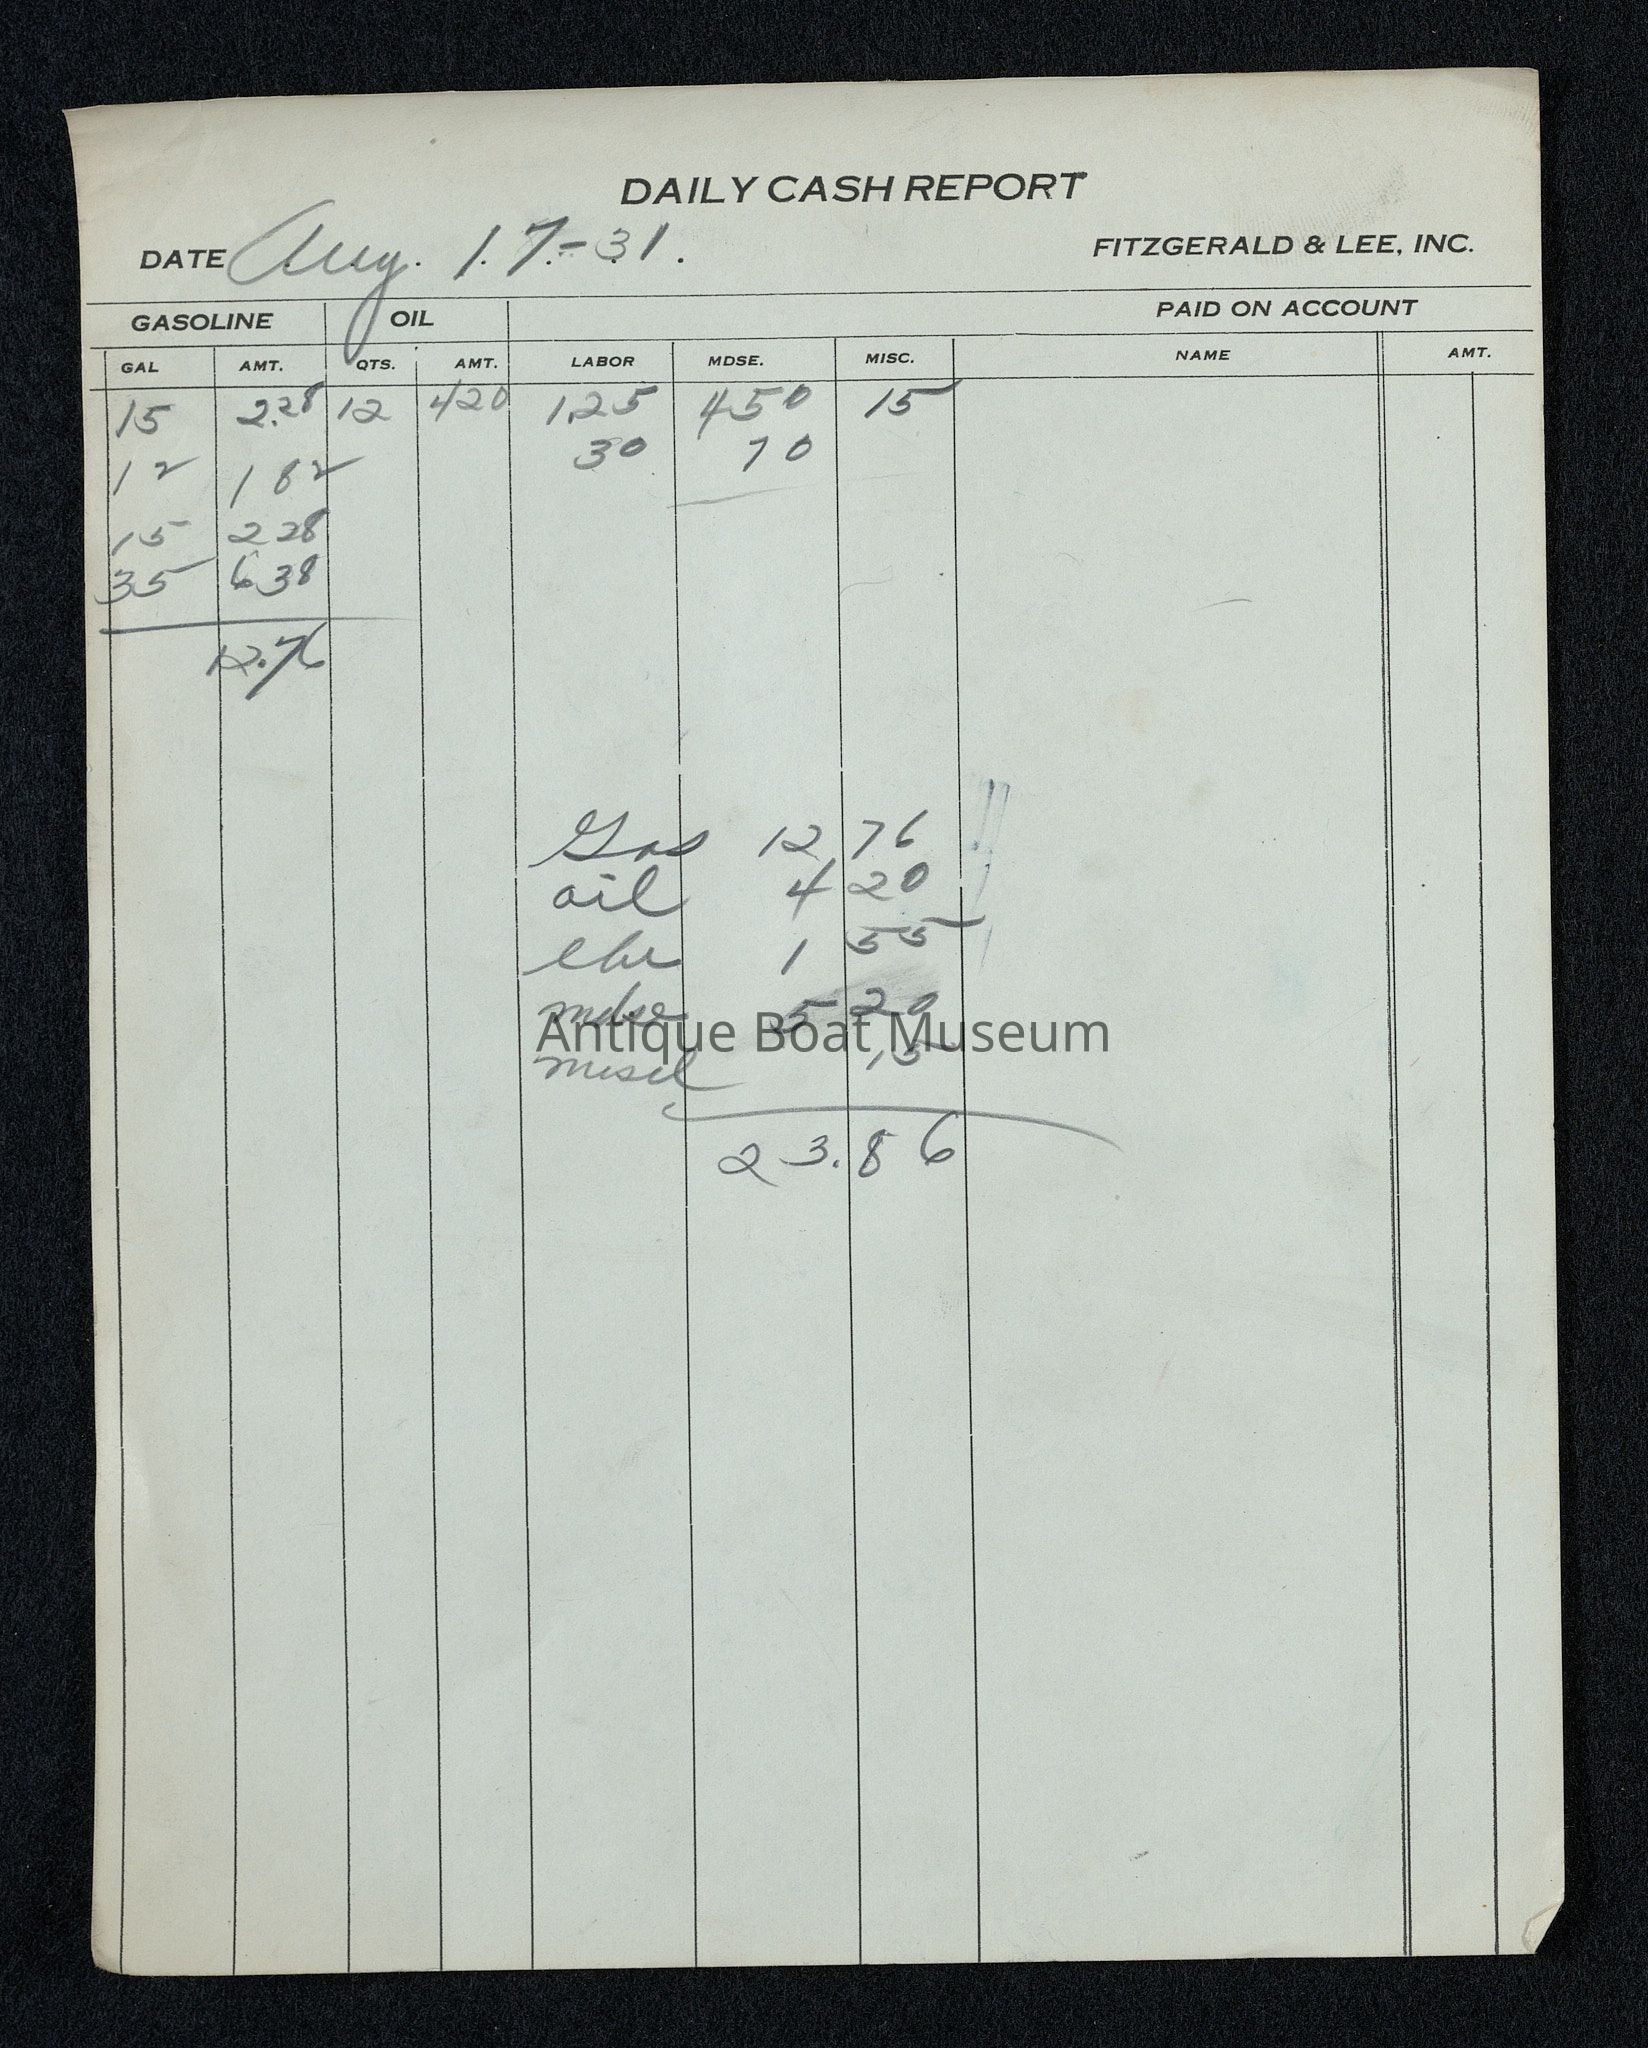 DAILY CASH REPORT
DATE Aug. 17-31.
FITZGERALD & LEE, INC.
GASOLINE OIL PAID ON ACCOUNT
GAL AMT. QTS. AMT. LABOR MDSE. MISC. NAME AMT.
15 2.28 12 420 1.25 450 15
12 182 30 70
15 228
35 638
12.76
Gas 12 76
oil 4 20
1 55
mdse 5 20
Antique Boat Museum
miscl 15
23.86